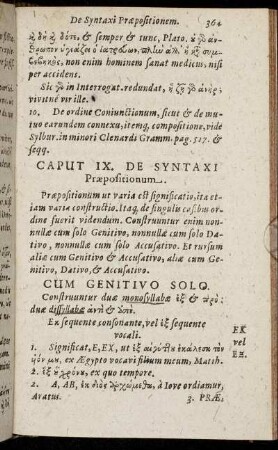 De Syntaxi Præpositionum. 361
per accidens.
vivitne vir ille.
10. De ordine Conjunctionum, sicut & de mu-
tuo earundem connexu, itemq, compositione, vide
Sylbur. in minori Clenardi Gramm. pag. 517. &
seqq.
CAPUT IX. DE SYNTAXI
Præpositionum.
Præpositionum ut varia est significatio, ita et-
iam varia constructio. Itaq, de singulis casibus or-
dine fuerit videndum. Construuntur enim non-
nullæ cum solo Genitivo, nonnullæ cum solo Da-
tivo, nonnullæ cum solo Accusativo. Et rursum
aliæ cum Genitivo & Accusativo, aliæ cum Ge-
nitivo, Dativo, & Accusativo.
CUM GENITIVO SOLO.
Construuntur duæ monosyllabæ ἐξ & πρό:
duæ dissyllabæ ἀντὶ & ἀπό.
Ex sequente consonante, vel ἐξ sequente
vocali.
EK
vel
Eξ.
1. Significat, E, EX, ut ἐξ αἰγύπτου ἐκάλεσα τὸν
υἱόν μου, ex Ægypto vocavi filium meum, Matth.
2. ἐξ οὗ χρόνου, ex quo tempore.
2. A, AB, ἐκ διὸς ἀρχώμεσθα, à Iove ordiamur,
Aratus. 3. PRÆ,